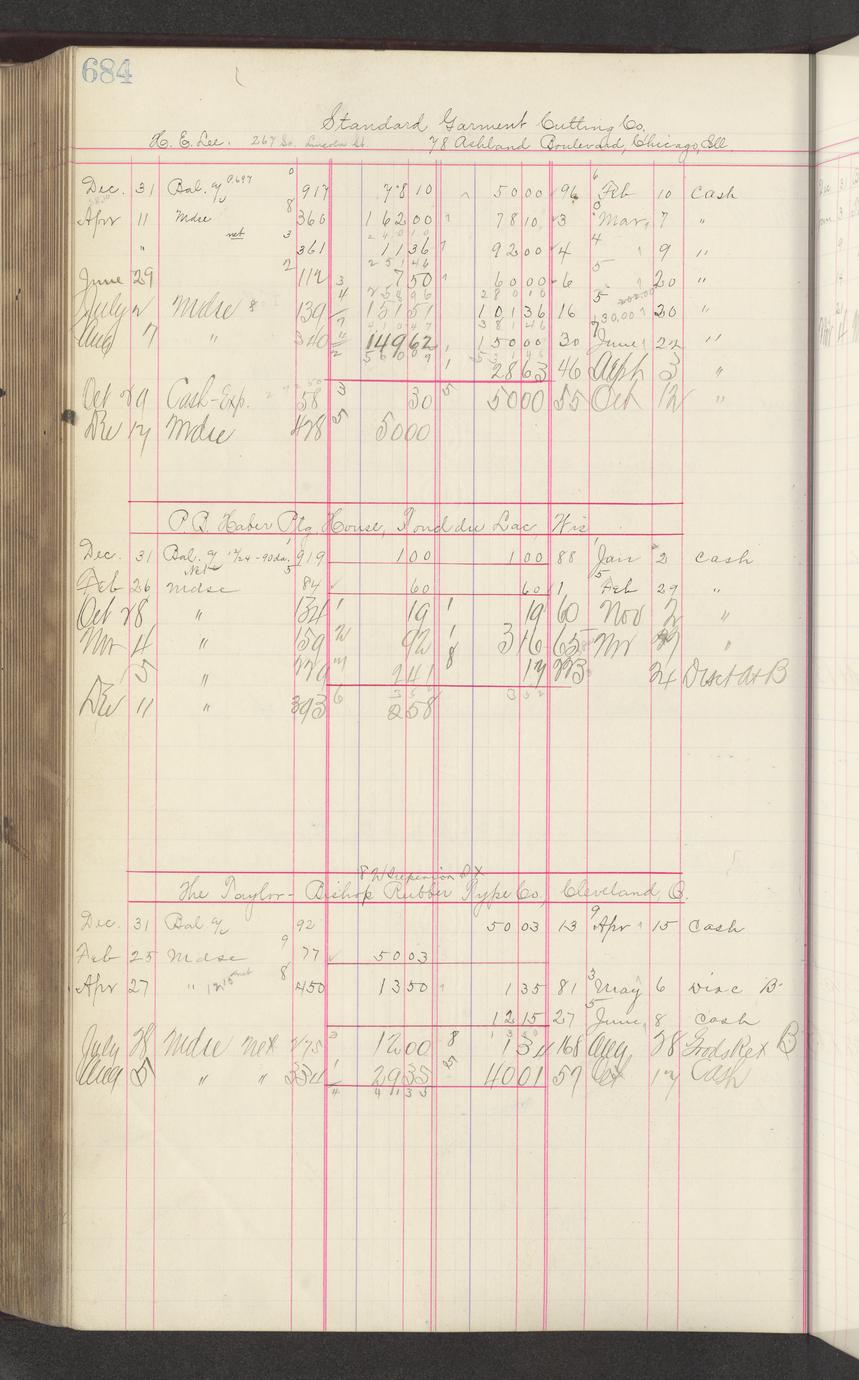 684
Standard Garment Cutting Co.
H. E. Lee. 267 So. Lincoln St 78 Ashland Boulevard, Chicago, Ill.
Dec. 31 Bal. 917 78 10 50 00 96 Feb 10 Cash
Apr 11 Mdse 360 162 00 78 10 3 Mar 7 "
" net 361 11 36 92 00 4 " 9 "
June 29 112 7 50 60 00 6 20 "
July 2 Mdse 139 151 51 101 36 16 30 "
Aug 7 " 340 149 62 150 00 30 June 22 "
28 63 46 Seph 3 "
Oct 29 Cash-Exp. 58 30 50 00 55 Oct 12 "
De 17 Mdse 478 50 00
P. B. Haber Ptg House, Fond du Lac, Wis
Dec. 31 Bal. 12/24 - 90 da. 919 1 00 1 00 88 Jan 2 Cash
Net
Feb 26 Mdse 84 60 60 1 Feb 29 "
Oct 28 " 134 19 19 60 Nov 2 "
Nov 4 " 159 92 3 16 65 Nov "
5 " 2 41 17 24 Disct B
3 52 3 52
Dec 11 " 393 2 58
8 W Superior St
The Taylor-Bishop Rubber Type Co, Cleveland, O.
Dec. 31 Bal 92 50 03 13 Apr 15 Cash
Feb 25 Mdse 77 50 03
Apr 27 " net 450 13 50 1 35 81 May 6 Disc B
12 15 27 June 8 Cash
July 28 Mdse net 275 12 00 1 34 168 Aug 28 Goods Ret B
Aug 5 " " 334 29 35 40 01 57 Oct 17 Cash
41 35